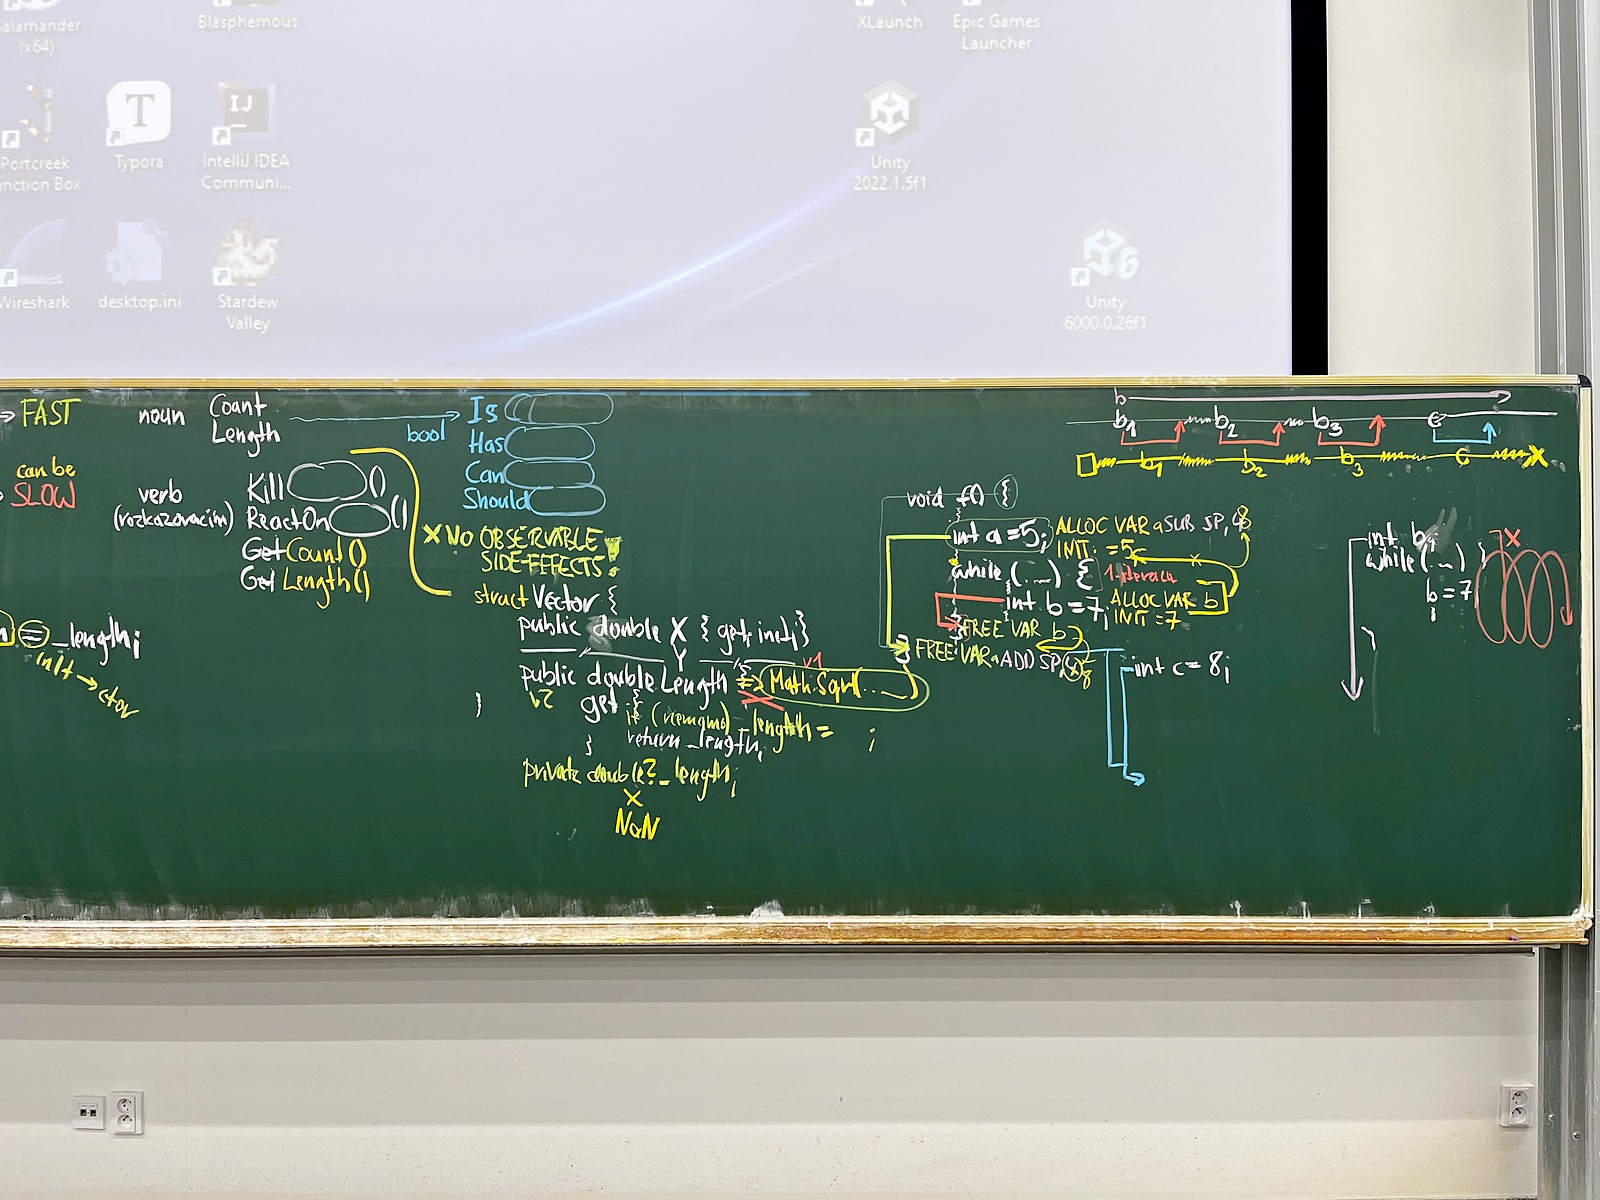 Salamander
(x64)
Blasphemous
XLaunch
Epic Games
Launcher
Portcreek
nction Box
T
Typora
IJ
IntelliJ IDEA
Communi...
Unity
2022.1.5f1
Wireshark
desktop.ini
Stardew
Valley
6
Unity
6000.0.26f1
→ FAST
can be
SLOW
noun
Count
Length
verb
(rozkazovacím)
Kill ()
ReactOn ()
GetCount()
Get Length()
bool
Is
Has
Can
Should
X NO OBSERVABLE
SIDE-EFFECTS!
= _length;
init → ctor
struct Vector {
public double X { get; init; }
Y
public double Length => Math.Sqrt(....
v1
v2
get {
if (                ) _length =      ;
return _length;
}
}
private double? _length;
X
NaN
void f() {
int a = 5;
ALLOC VAR a SUB SP, 8
INIT = 5
while (...) {
1. iterace
int b = 7;
ALLOC VAR b
INIT = 7
} FREE VAR b
} FREE VAR a ADD SP, 8
int c = 8;
b
b1 b2 b3 c
b1 b2 b3 c X
int b;
while (...) {
b = 7
;
}
X